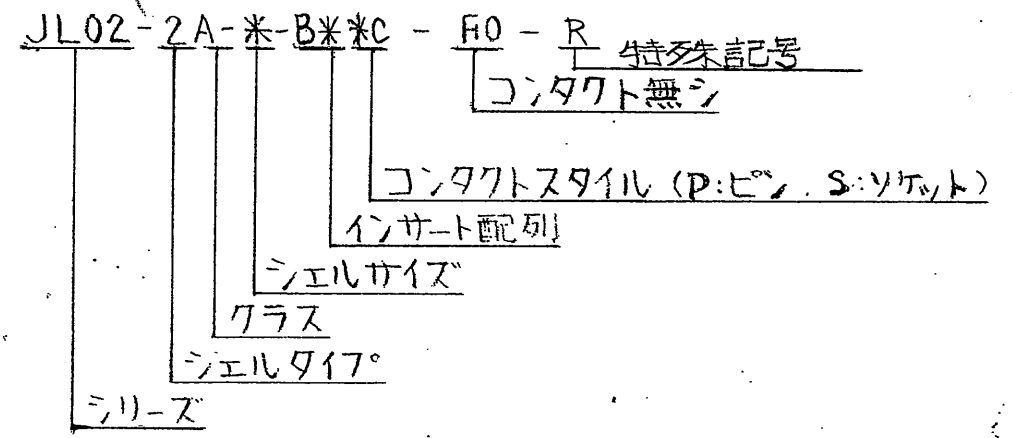 JL02-2A-*-B**C - F0 - R
特殊記号
コンタクト無シ
コンタクトスタイル (P:ピン. S:ソケット)
インサート配列
シェルサイズ
クラス
シェルタイプ
シリーズ